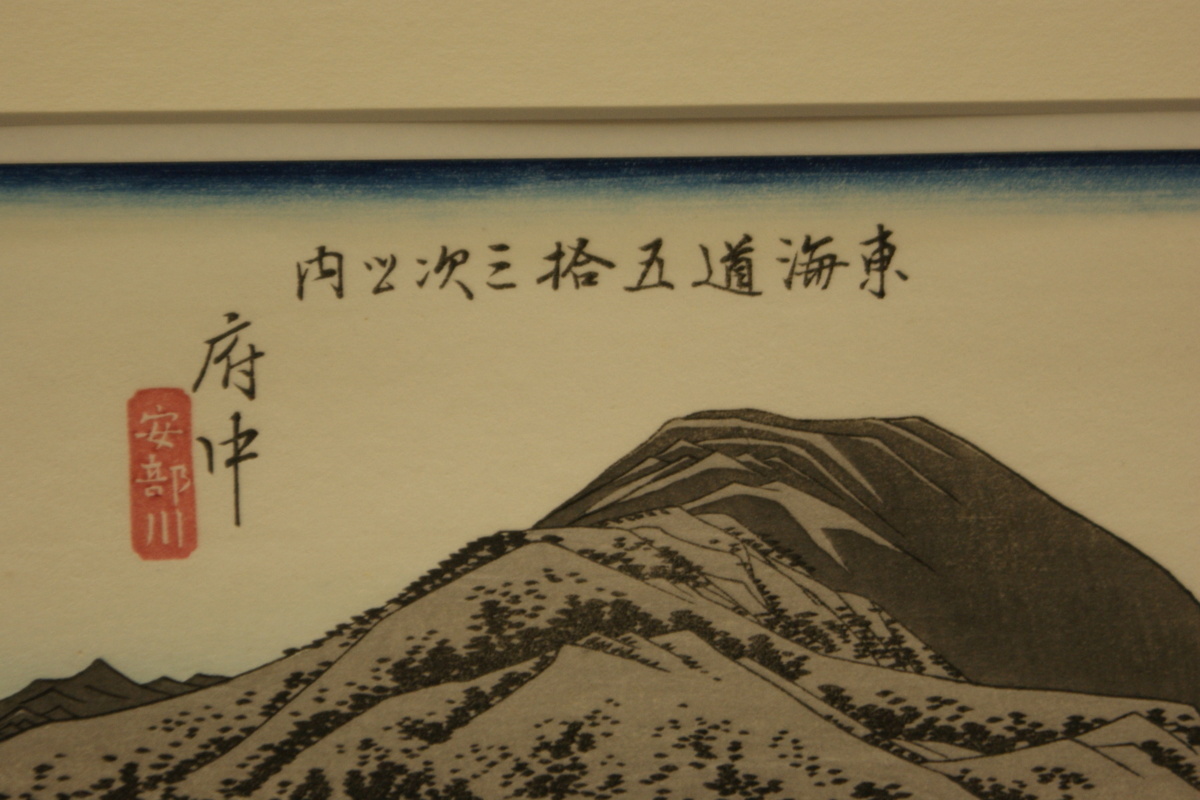 東海道五拾三次之内
府中
安部川